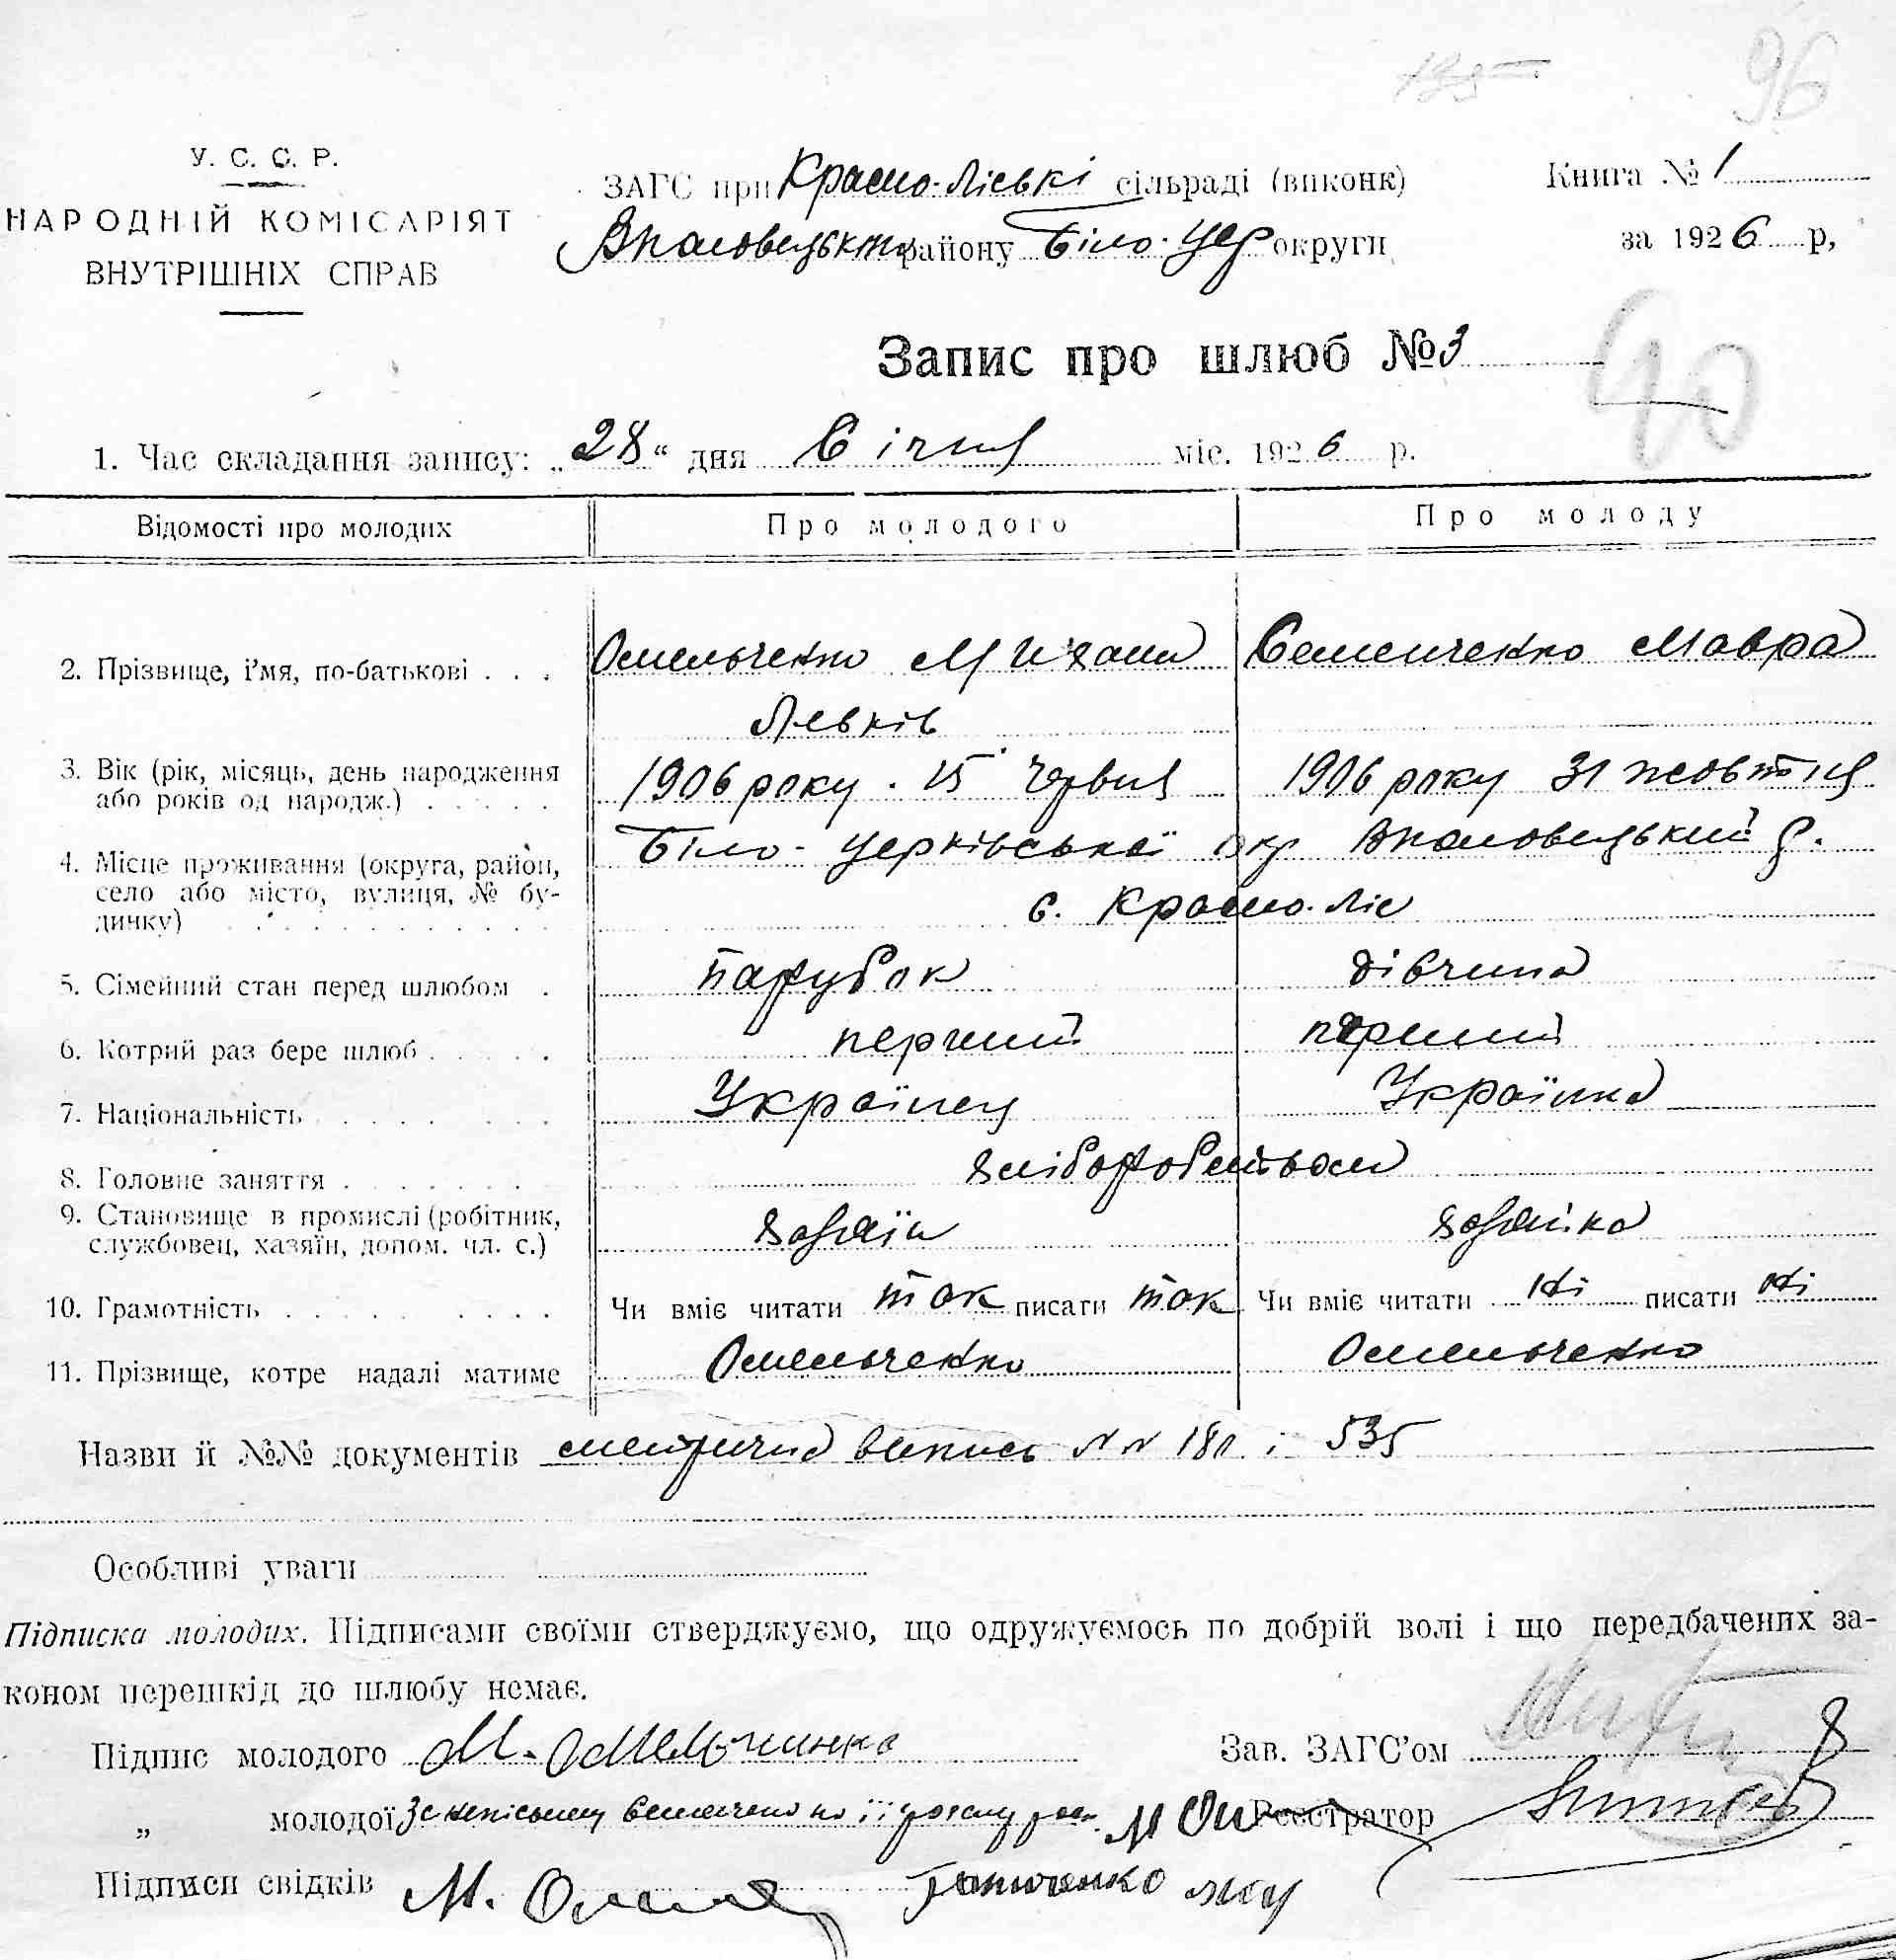 96
У. С. С. Р.
НАРОДНІЙ КОМІСАРІЯТ
ВНУТРІШНІХ СПРАВ
ЗАГС при Красно-Ліські сільраді (виконк)
району Біло-Цер округи
Книга № 1
за 1926 р,
Запис про шлюб № 3
40
1. Час складання запису: „28“ дня Січня міс. 1926 р.
Відомості про молодих Про молодого Про молоду
2. Прізвище, і'мя, по-батькові . . . Омельченко Михаил Семенченко Мавра
Левків
3. Вік (рік, місяць, день народження
або років од народж.) . . . . . 1906 року . 15 Червня 1906 року 31 жовтня
4. Місце проживання (округа, район,
село або місто, вулиця, № бу-
динку) . . . . . . . . . . . Біло-Церківської окр р.
с. Красно-Ліс
5. Сімейний стан перед шлюбом . парубок дівчина
6. Котрий раз бере шлюб . . . . . перчий перший
7. Національність . . . . . . . Українец Українка
8. Головне заняття . . . . . . . хліборобством
9. Становище в промислі (робітник,
службовец, хазяїн, допом. чл. с.) хозяїн хозяйка
10. Грамотність . . . . . . . . . Чи вміє читати так писати так Чи вміє читати ні писати ні
11. Прізвище, котре надалі матиме Омельченко Омельченко
Назви й №№ документів метрична випись N N 181 і 535
Особливі уваги
Підписка молодих. Підписами своїми стверджуємо, що одружуємось по добрій волі і що передбачених за-
коном перешкід до шлюбу немає.
Підпис молодого М. Омельчинко
Зав. ЗАГС'ом
„ молодої За неписьмену Семенченко по її
Реєстратор
Підписи свідків М.